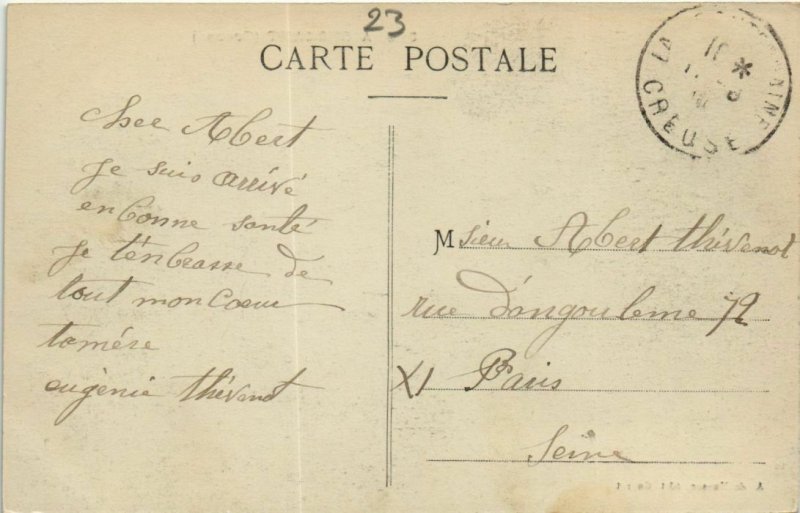 23
CARTE POSTALE
LA
CREUSE
cher Abert
je suis arrivé
en bonne santé
je t'enbrasse de
tout mon coeur
ta mére
eugènie thévenot
Msieur Abert thévenot
rue d'angouleme 72
XI Paris
Seine